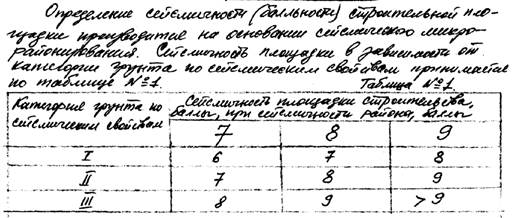 Определение сейсмичности (балльности) строительной пло-
щадки производится на основании сейсмического микро-
районирования. Сейсмичность площадки в зависимости от
категории грунта по сейсмическим свойствам принимается
по таблице №1.
Таблица №1
Категория грунта по сейсмическим свойствам
Сейсмичность площадки строительства,
баллы, при сейсмичности района, баллы
7 8 9
I 6 7 8
II 7 8 9
III 8 9 >9